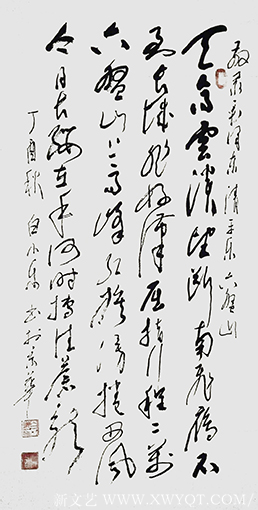 敬录毛泽东清平乐六盘山
天高雲淡望断南飛雁不
到长城非好漢屈指行程二萬
六盤山上高峰红旗漫捲西风
今日长缨在手何时缚住苍龙
丁酉秋 白小 书於京華
新文艺 WWW.XWYQT.COM/